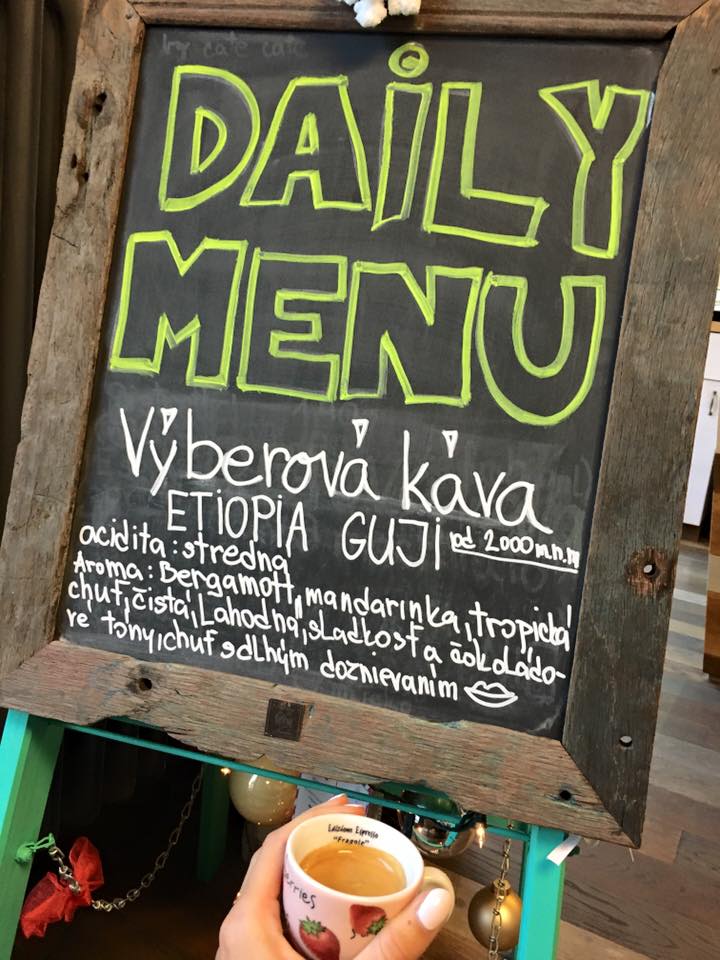 DAiLY
MENU
Výberová káva
ETIOPIA GUJI od 2000m.n.m
acidita: stredná
Aroma: Bergamott, mandarinka, tropická
chuť, čistá, Lahodná, sladkosť a čokoládo-
vé tóny, chuť s dlhým doznievaním
Edizione Espresso
"Fragole"